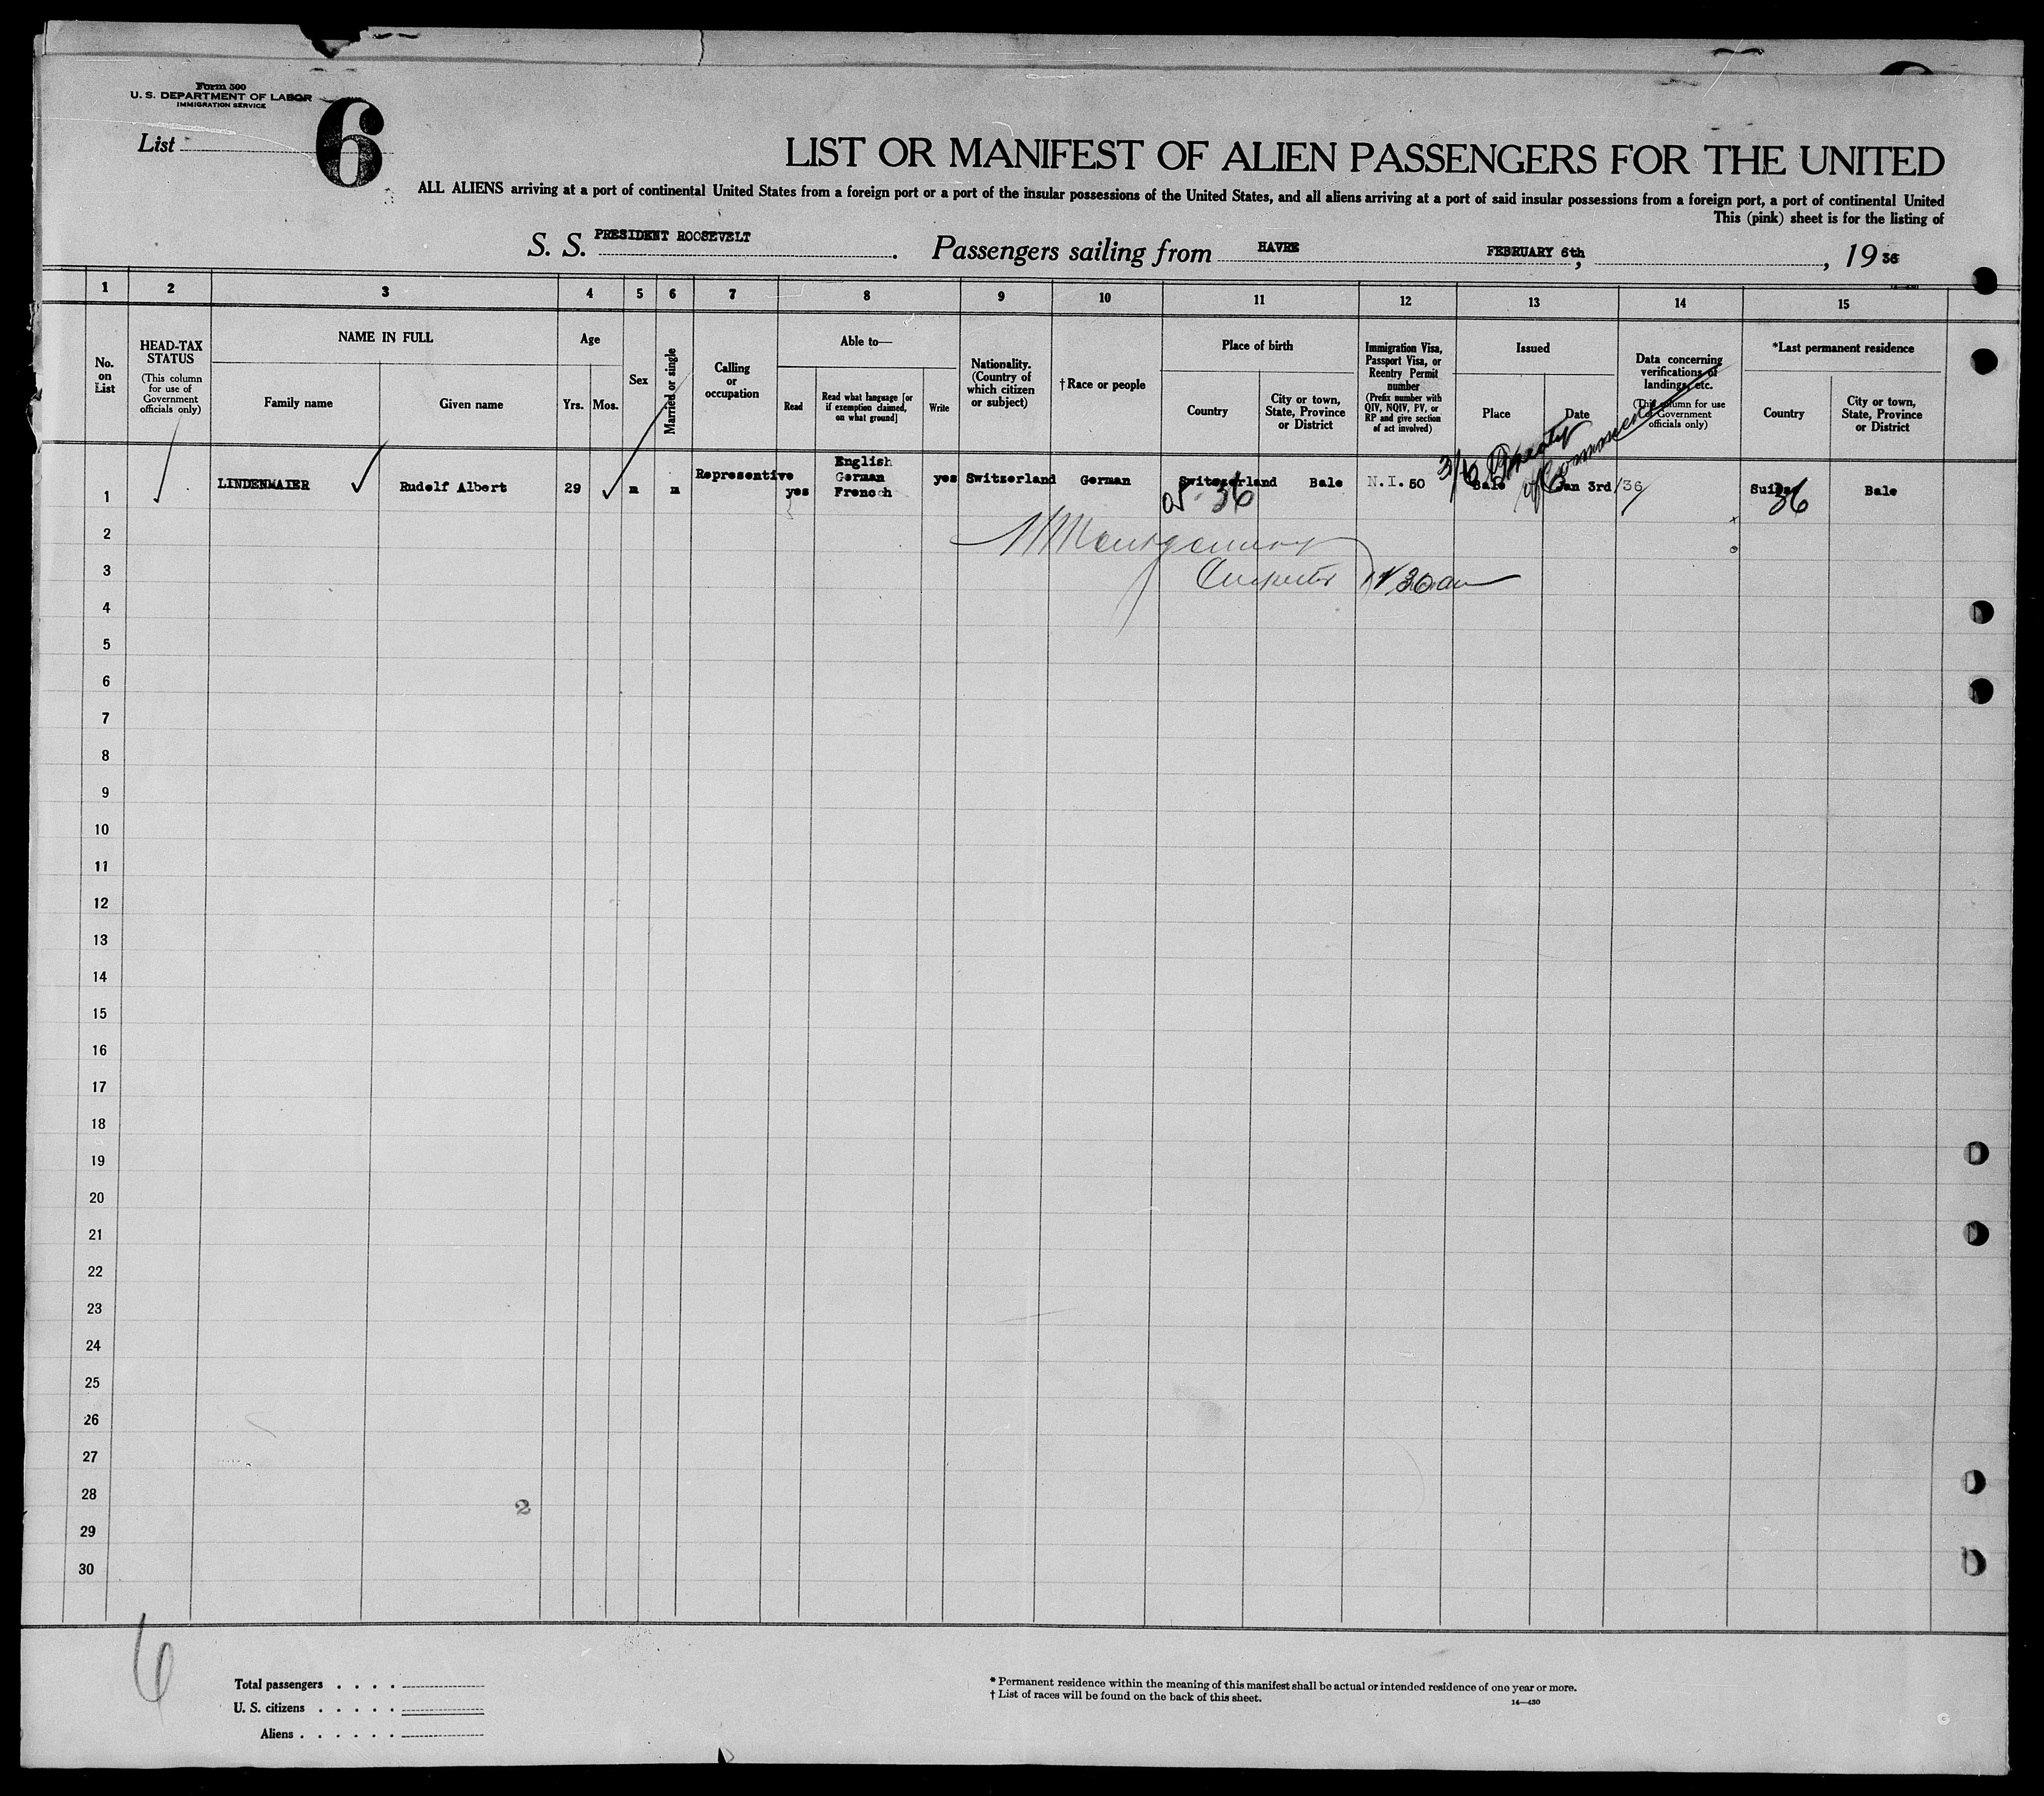 Form 500
U. S. DEPARTMENT OF LABOR
IMMIGRATION SERVICE
List 6
LIST OR MANIFEST OF ALIEN PASSENGERS FOR THE UNITED
ALL ALIENS arriving at a port of continental United States from a foreign port or a port of the insular possessions of the United States, and all aliens arriving at a port of said insular possessions from a foreign port, a port of continental United
This (pink) sheet is for the listing of
S. S. PRESIDENT ROOSEVELT. Passengers sailing from HAVRE FEBRUARY 6th, , 1936
1 2 3 4 5 6 7 8 9 10 11 12 13 14 15
No. on List
HEAD-TAX STATUS
(This column for use of Government officials only)
NAME IN FULL
Family name
Given name
Age
Yrs.
Mos.
Sex
Married or single
Calling or occupation
Able to—
Read
Read what language [or if exemption claimed, on what ground]
Write
Nationality. (Country of which citizen or subject)
†Race or people
Place of birth
Country
City or town, State, Province or District
Immigration Visa, Passport Visa, or Reentry Permit number
(Prefix number with QIV, NQIV, PV, or RP and give section of act involved)
Issued
Place
Date
Data concerning verifications of landings, etc.
(This column for use of Government officials only)
*Last permanent residence
Country
City or town, State, Province or District
3/6 Treaty of Commerce
1 LINDENMAIER Rudolf Albert 29 m m Representive yes English German French yes Switzerland German Switzerland Bale N.I. 50 Bale Jan 3rd/36 Suiss Bale
36 36
Montgomery
Inspector 11 30 am
2
3
4
5
6
7
8
9
10
11
12
13
14
15
16
17
18
19
20
21
22
23
24
25
26
27
28
2
29
30
6
Total passengers . . . .
U. S. citizens . . . . .
Aliens . . . . . .
* Permanent residence within the meaning of this manifest shall be actual or intended residence of one year or more.
† List of races will be found on the back of this sheet.
14—430